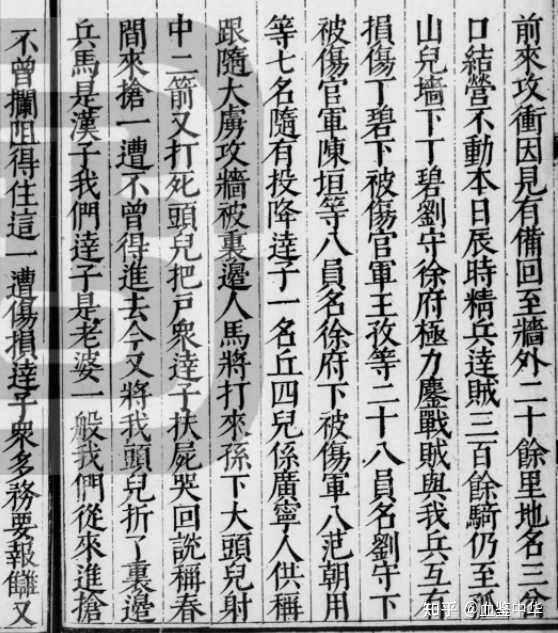 前來攻衝因見有備回至牆外二十餘里地名三岔
口結營不動本日辰時精兵逹賊三百餘騎仍至孤
山兒墻下丁碧劉守徐府極力鏖戰賊與我兵互有
損傷丁碧下被傷官軍王孜等二十八員名劉守下
被傷官軍陳垣等八員名徐府下被傷軍人范朝用
等七名隨有投降逹子一名丘四兒係廣寧人供稱
跟隨大虜攻牆被裏邊人馬將打來孫下大頭兒射
中二箭又打死頭兒把戶衆逹子扶屍哭回說稱春
間來搶一遭不曾得進去今又將我頭兒折了裏邊
兵馬是漢子我們逹子是老婆一般我們從來進搶
不曾攔阻得住這一遭傷損逹子衆多務要報讎又
知乎 @血鉴中华